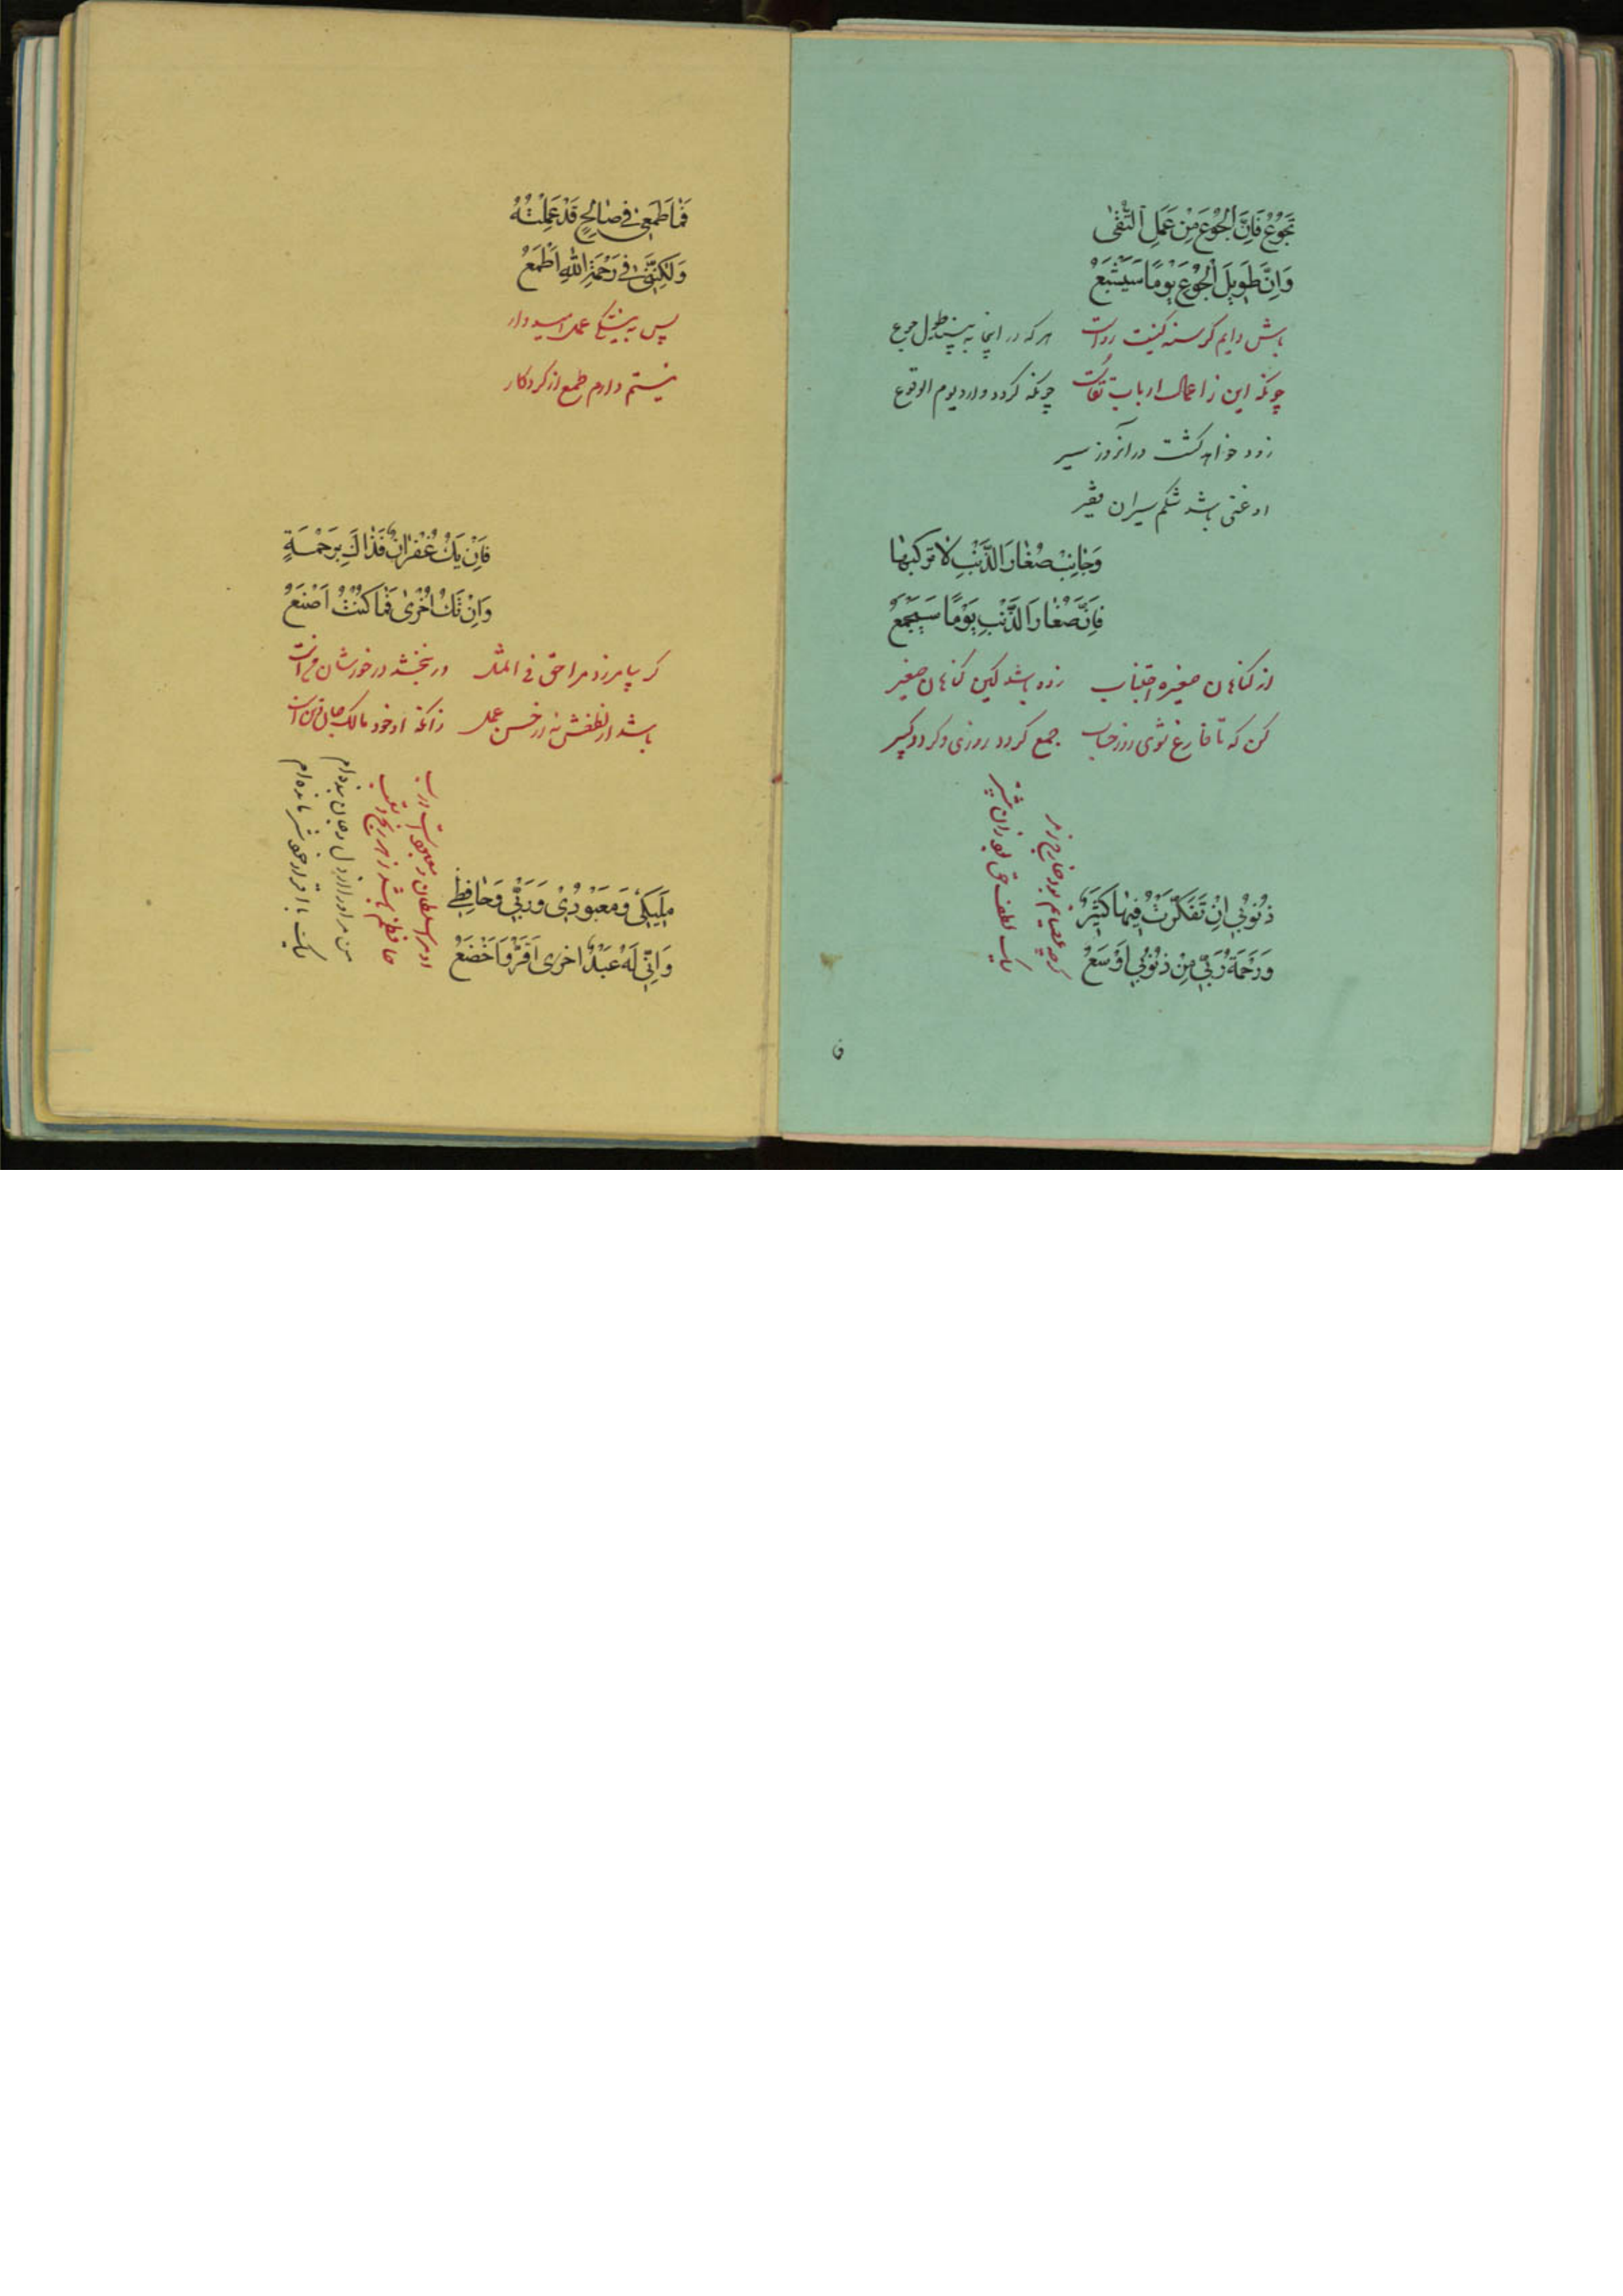 تَجَوَّعْ فَاِنَّ الْجُوْعَ مِنْ عَمَلِ التُّقٰی
وَاِنَّ طَوِیْلَ الْجُوْعِ یَوْمًا سَیَشْبَعُ
باش دایم کرسنه کینت رواست هر که در اینجا به بیند طول جوع
چونکه این ز اعمال ارباب تقاست چونکه کردد وارد یوم الوقوع
زود خواهد کشت در آنروز سیر
او غنی باشد شکم سیران فقیر
وَجَانِبْ صِغَارَ الذَّنْبِ لَا تَرْکَبَنَّهَا
فَاِنَّ صِغَارَ الذَّنْبِ یَوْمًا سَیُجْمَعُ
از کناهان صغیره اجتناب زود باشد لیکن کناهان صغیر
کن که تا فارغ شوی روز حساب جمع کردد روزی و کردد کبیر
ذُنُوْبِیْ اِنْ تَفَکَّرْتُ فِیْهَا کَثِیْرَةٌ
وَرَحْمَةُ رَبِّیْ مِنْ ذُنُوْبِیْ اَوْسَعُ
کرچه عصیانم بود خارج ز مر
لیک لطف حق بود زان بیشتر
فَمَا طَمَعِیْ فِیْ صَالِحٍ قَدْ عَمِلْتُهُ
وَلٰکِنَّنِیْ فِیْ رَحْمَةِ اللهِ اَطْمَعُ
پس به نیکی عمل امیدوار
نیستم دارم طمع از کردکار
فَاِنْ یَكُ غُفْرَانٌ فَذَاكَ بِرَحْمَةٍ
وَاِنْ تَكُ اُخْرٰی فَمَا کُنْتُ اَصْنَعُ
کر بیامرزد مرا حق فی المثل ور نبخشد در خور شان
باشد از لطفش نه از حسن عمل زانکه او خود مالک
مَلِیْکِیْ وَمَعْبُوْدِیْ وَرَبِّیْ وَحَافِظِیْ
وَاِنِّیْ لَهُ عَبْدٌ اخری اُقِرُّ وَاَخْضَعُ
او مرا سلطان و معبود است و رب
حافظم باشد ز هر رنج و تعب
من مر او را از دل و جان بنده‌ام
لیک با اقرار
ف